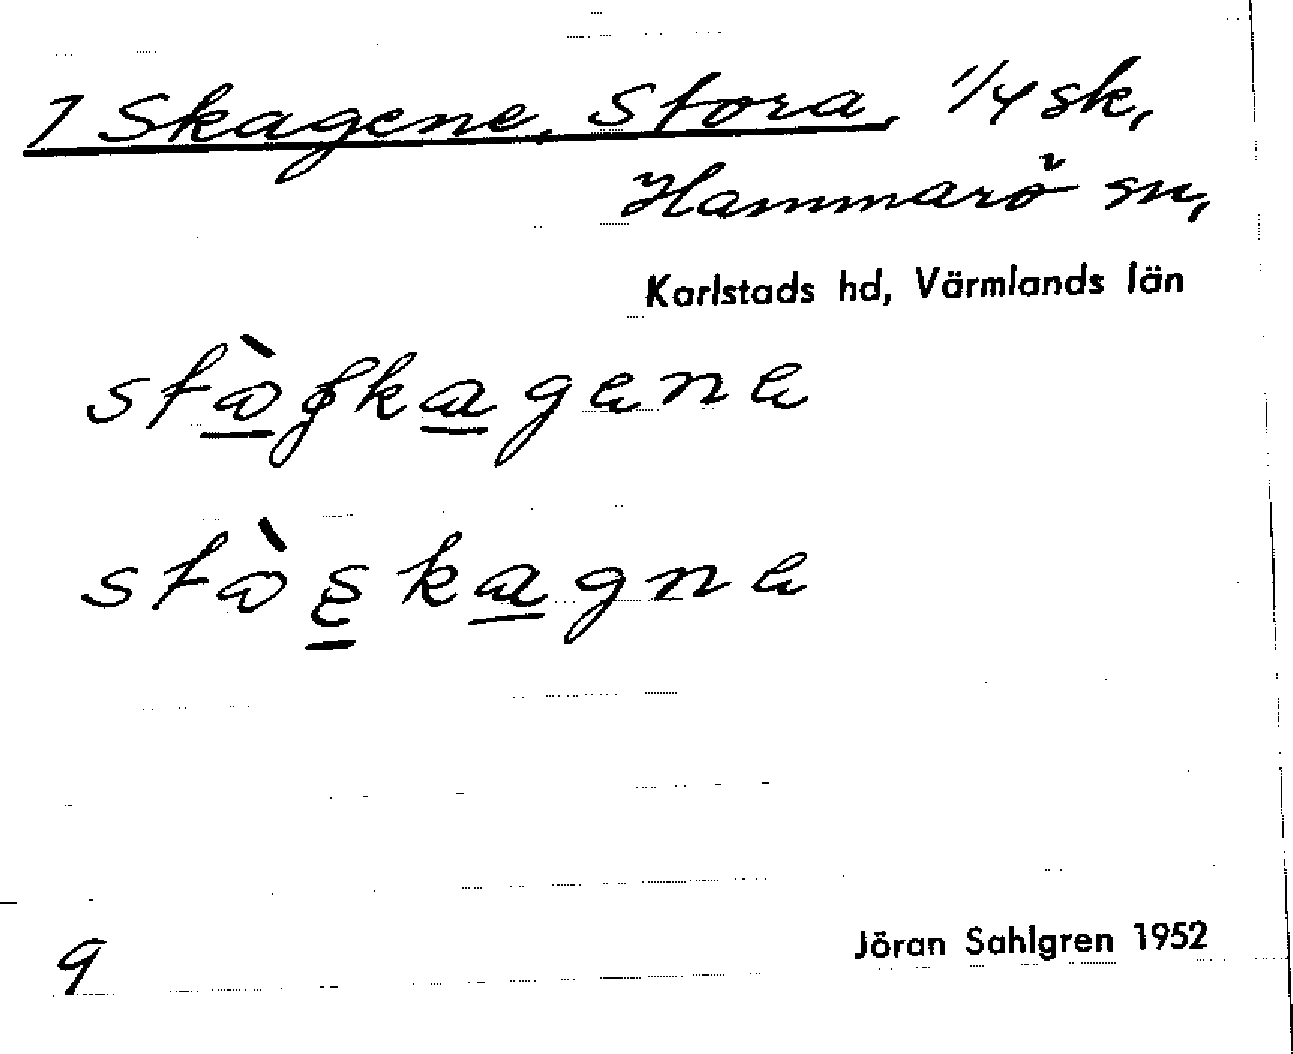 1 Skagene, Stora, 1/4 sk,
Hammarö sn,
Karlstads hd, Värmlands län
Jöran Sahlgren 1952
9